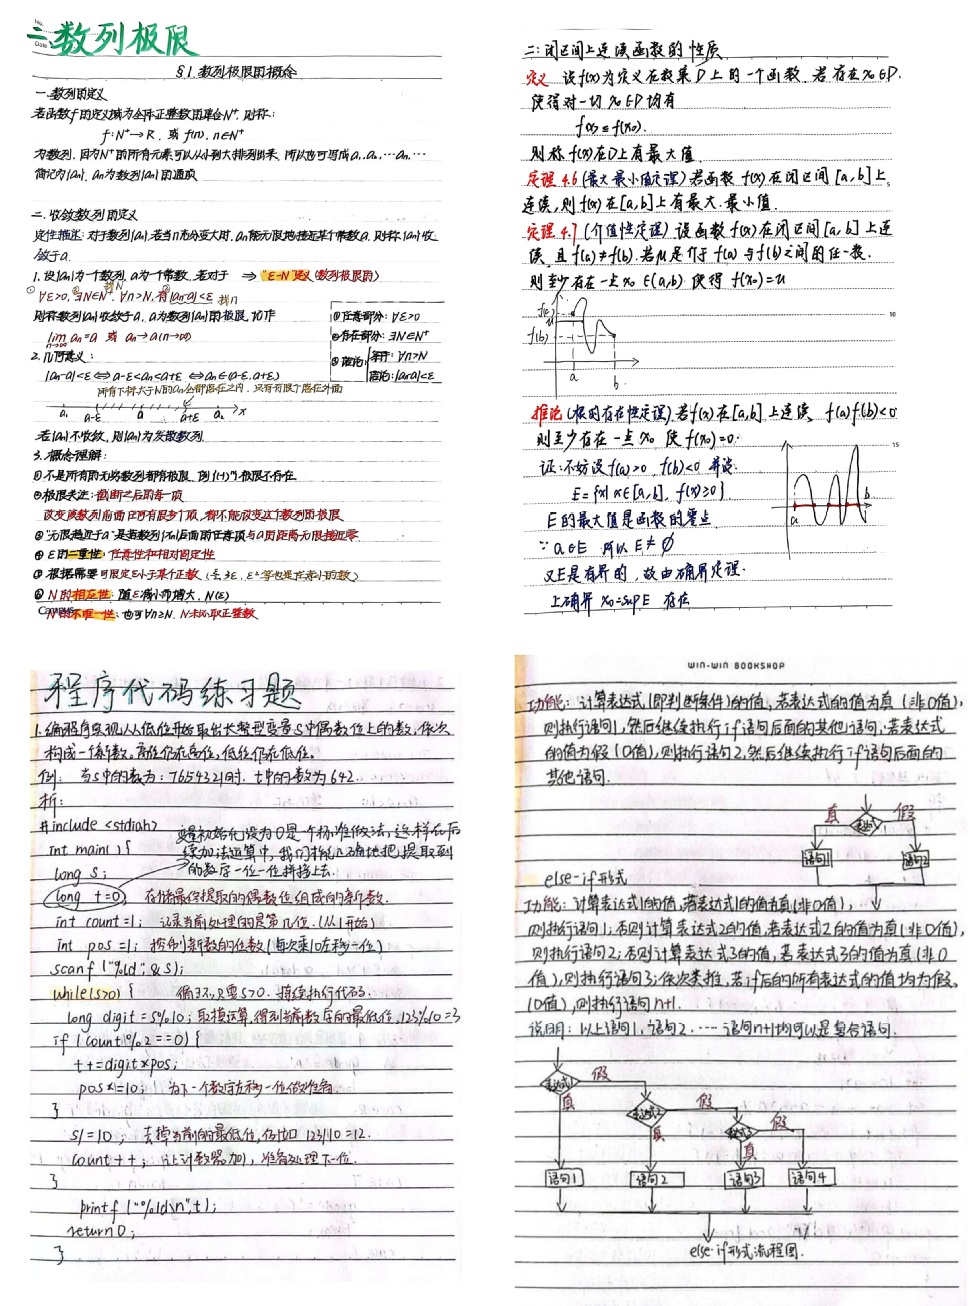 二、数列极限
§1.数列极限的概念
一.数列的定义
若函数f的定义域为全体正整数的集合N⁺,则称:
f:N⁺→R.或 f(n).n∈N⁺
为数列.因为N⁺的所有元素可以从小到大排列出来,所以也可写成a₁.a₂.…aₙ.…
简记为{aₙ}.aₙ为数列{aₙ}的通项
二.收敛数列的定义
定性描述:对于数列{aₙ}.若当n充分变大时.aₙ能无限地接近某个常数a.则称{aₙ}收
敛于a.
1.设{aₙ}为一个数列.a为一个常数.若对于 ⇒ "ε-N"定义(数列极限的)
①∀ε>0.②∃N∈N⁺.∀n>N.有|aₙ-a|<ε 找n
则称数列{aₙ}收敛于a.a为数列{aₙ}的极限.记作
lim aₙ=a 或 aₙ→a(n→∞)
n→∞
①任意部分:∀ε>0
②存在部分:∃N∈N⁺
③结论:条件:∀n>N
结论:|aₙ-a|<ε
2.几何意义:
|aₙ-a|<ε⇔a-ε<aₙ<a+ε ⇔aₙ∈(a-ε.a+ε)
所有下标大于N的aₙ全部落在之内.只有有限个落在外面
a₁ a-ε a a+ε a₂ x
若{aₙ}不收敛.则{aₙ}为发散数列
3.概念理解:
①不是所有的无穷数列都有极限.例{(-1)ⁿ}极限不存在
②极限关注:截断之后的每一项
改变该数列前面已有有限多个项,都不能改变这个数列的极限
③"无限趋近于a"是指数列{aₙ}后面的任意项与a的距离无限接近零
④ε的二重性:任意性和相对固定性
⑤根据需要可限定ε小于某个正数
⑥N的相应性:随ε减小而增大.N(ε)
N的不唯一性:也可∀n≥N.N未必取正整数
二:闭区间上连续函数的性质
定义 设f(x)为定义在数集D上的一个函数.若存在x₀∈D.
使得对一切x∈D均有
f(x)≤f(x₀).
则称f(x)在D上有最大值.
定理4.6(最大最小值定理)若函数f(x)在闭区间[a,b]上
连续,则f(x)在[a,b]上有最大.最小值.
定理4.7(介值性定理)设函数f(x)在闭区间[a,b]上连
续,且f(a)≠f(b).若μ是介于f(a)与f(b)之间的任一数.
则至少存在一点x₀∈(a,b)使得f(x₀)=μ
f(a)
u
f(b)
a b
10
推论(根的存在性定理)若f(x)在[a,b]上连续.f(a)f(b)<0
则至少存在一点x₀使f(x₀)=0.
15
证:不妨设f(a)>0 f(b)<0 并设:
E={x|x∈[a,b].f(x)≥0}.
E的最大值是函数的零点
∵a∈E 所以E≠∅
又E是有界的,故由确界定理.
上确界x₀=supE 存在
a b
程序代码练习题
1.编程序实现从低位开始取出长整型变量s中偶数位上的数,依次
构成一个新数.高位仍在高位,低位仍在低位。
例: 当s中的数为:7654321时.t中的数为642.
析:
#include <stdioh>
int main(){
变量初始化设为0是个标准做法,这样在后
续加法运算中,我们才能正确地把提取到
的数字一位一位拼接上去.
long s;
long t=0; 存储最终提取的偶数位组成的新数.
int count=1; 记录当前处理的是第几位.(从1开始)
int pos=1; 控制新数的位数(每次乘10左移一位)
scanf("%ld",&s);
while(s>0) { 循环.只要s>0.持续执行代码.
long digit=s%10;取模运算,得到当前数字的最低位,123%10=3
if (count%2==0){
t+=digit*pos;
pos*=10; 为下一个数字左移一位做准备.
}
s/=10; 去掉当前的最低位,例如 123/10=12.
count++; 让计数器加1,准备处理下一位.
}
printf("%ld\n",t);
return0;
}
WIN-WIN BOOKSHOP
功能:计算表达式(即判断条件)的值,若表达式的值为真(非0值),
则执行语句1,然后继续执行if语句后面的其他语句;若表达式
的值为假(0值),则执行语句2,然后继续执行if语句后面的
其他语句.
真 表达式 假
语句1 语句2
else-if形式
功能:计算表达式1的值,若表达式1的值为真(非0值),
则执行语句1;否则计算表达式2的值,若表达式2的值为真(非0值),
则执行语句2;否则计算表达式3的值,若表达式3的值为真(非0
值),则执行语句3;依次类推,若if后的所有表达式的值均为假
(0值),则执行语句n+1.
说明:以上语句1,语句2.……语句n+1均可以是复合语句.
表达式1 假
真 表达式2 假
真 表达式3 假
真
语句1 语句2 语句3 语句4
else-if形式流程图.